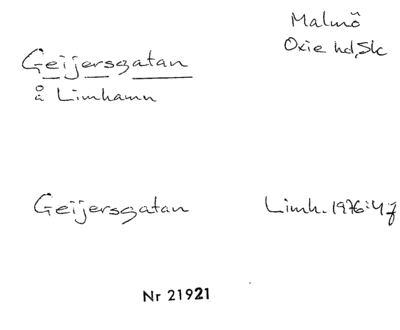 Malmö
Oxie hd, Sk
Geijersgatan
å Limhamn
Geijersgatan Limh. 1976:47
Nr 21921